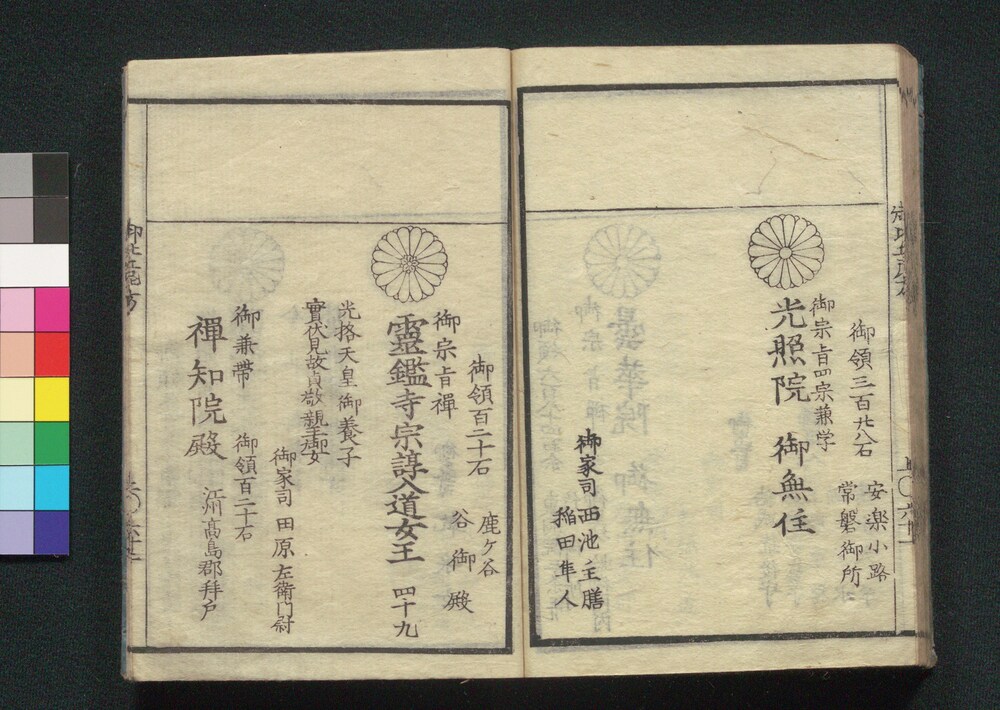 安楽小路
常磐御所
御領三百廿八石
御宗旨四宗兼学
光照院 御無住
御家司 西池主膳
稲田隼人
鹿ケ谷
谷御殿
御領百二十石
御宗旨禅
霊鑑寺宗諄入道女王 四十九
光格天皇御養子
實伏見故貞敬親王御女
御家司 田原左衛門尉
御兼帯 御領百二十石
禪知院殿 江州高島郡拜戸